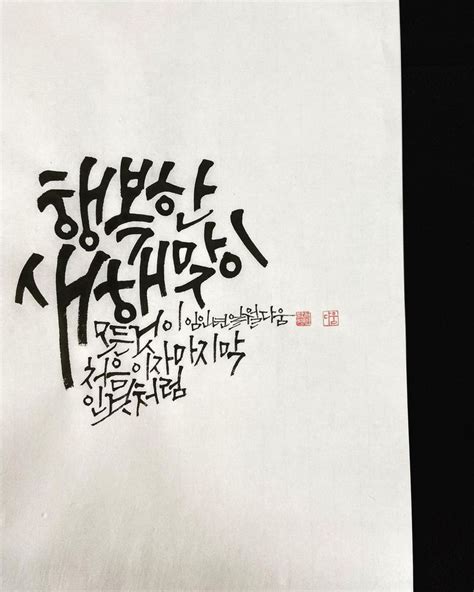 행복한
새해맞이
모든것이
처음이자마지막
인것처럼
임인년일월다움